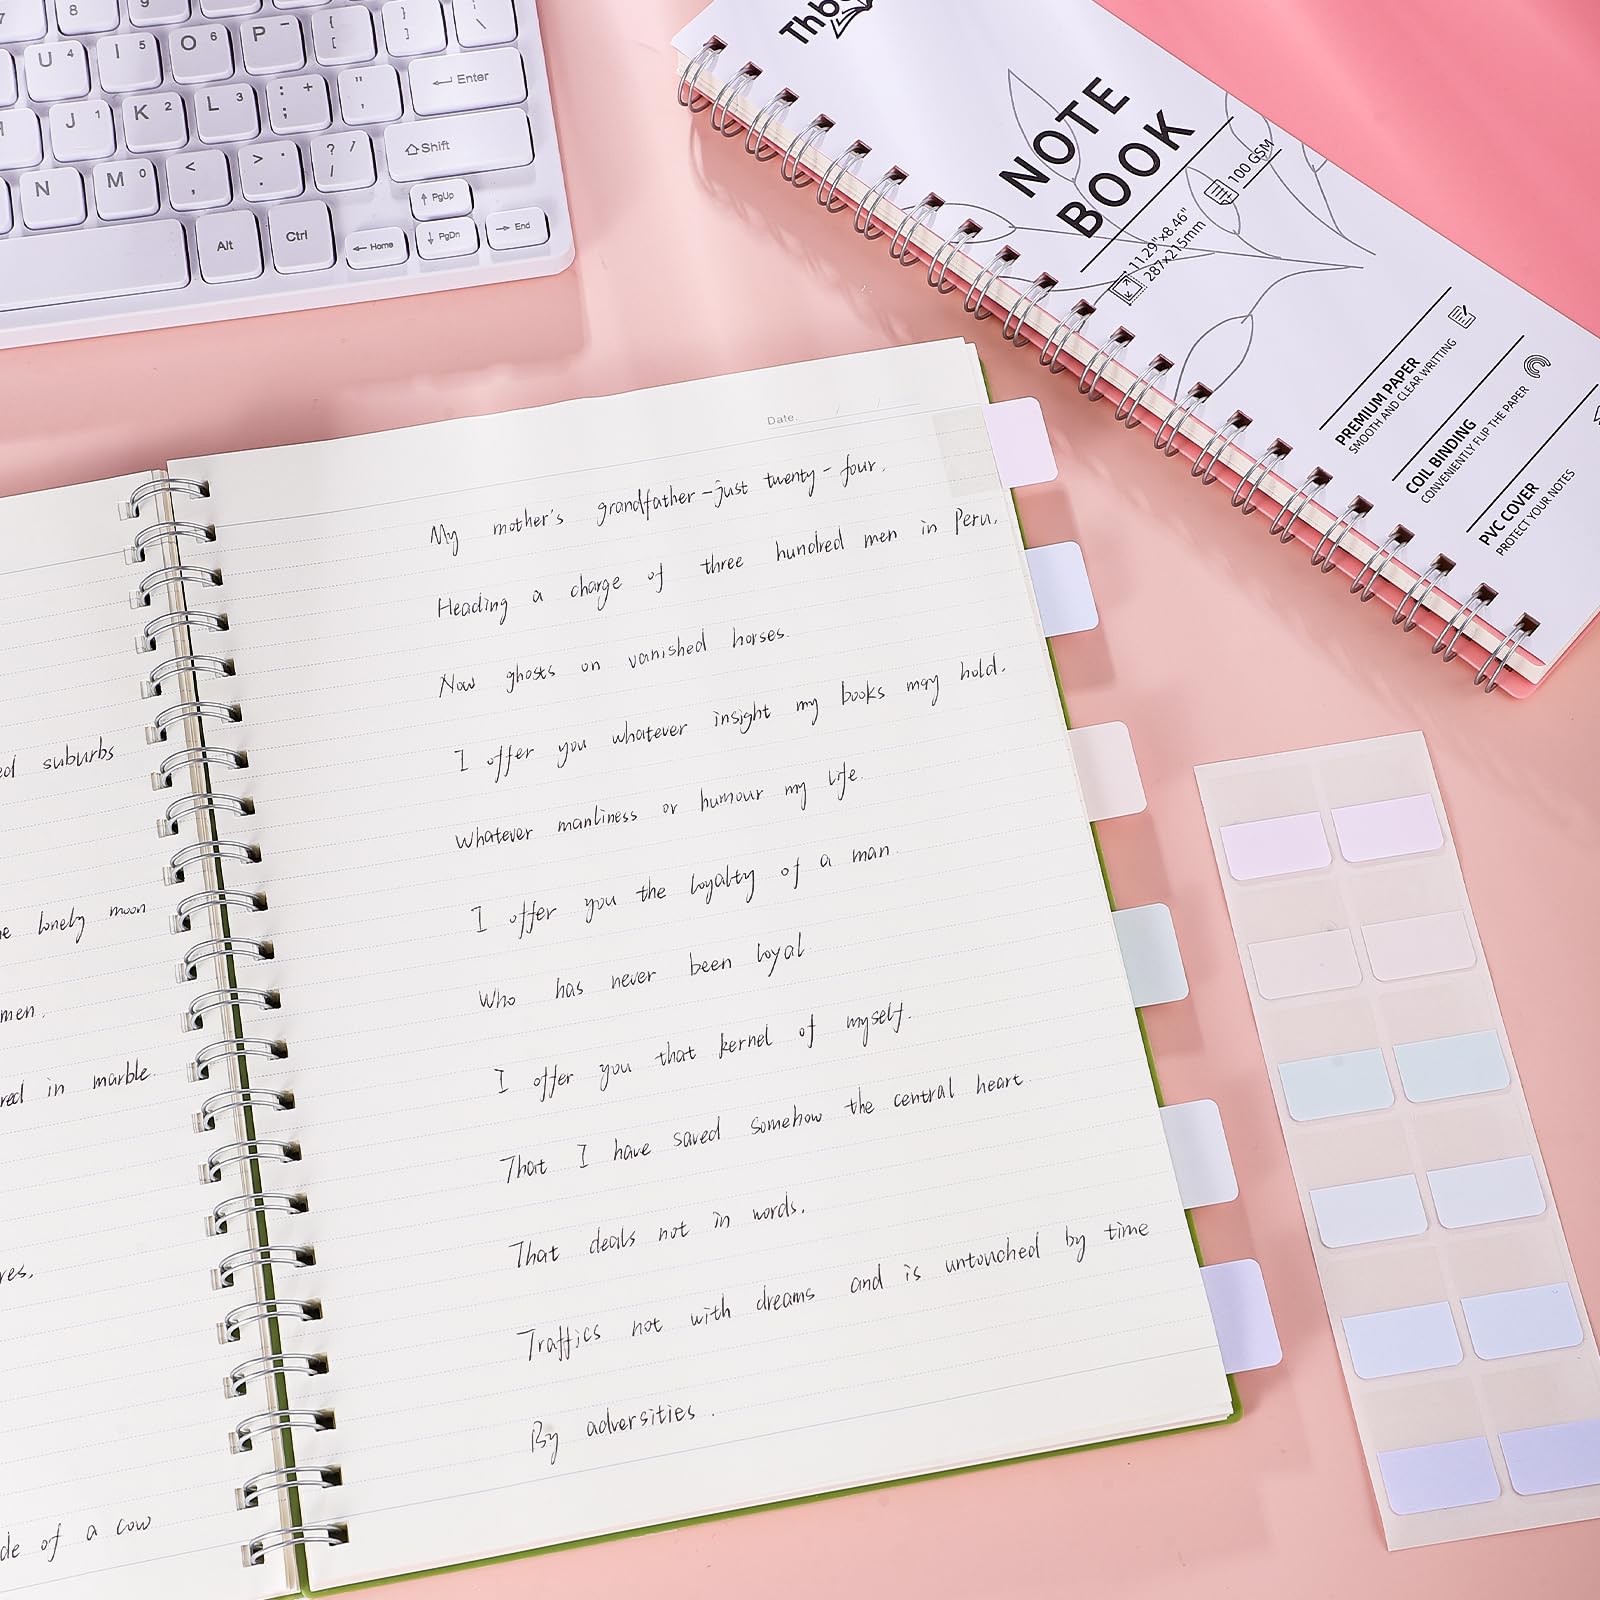 7
8
9
U 4
I 5
O 6
P -
{
[
}
]
|
\
J 1
K 2
L 3
: +
;
"
'
Enter
N
M 0
<
,
> .
.
? /
/
Shift
Alt
Ctrl
PgUp
Home
PgDn
End
NOTE
BOOK
11.29"x8.46"
287x215mm
100 GSM
PREMIUM PAPER
SMOOTH AND CLEAR WRITTING
COIL BINDING
CONVENIENTLY FLIP THE PAPER
PVC COVER
PROTECT YOUR NOTES
suburbs
lonely moon
men.
in marble.
of a cow
Date. / /
My mother's grandfather-just twenty-four.
Heading a charge of three hundred men in Peru.
Now ghosts on vanished horses.
I offer you whatever insight my books may hold.
Whatever manliness or humour my life.
I offer you the loyalty of a man.
Who has never been loyal
I offer you that kernel of myself.
That I have saved somehow the central heart.
That deals not in words.
Traffics not with dreams and is untouched by time
By adversities.